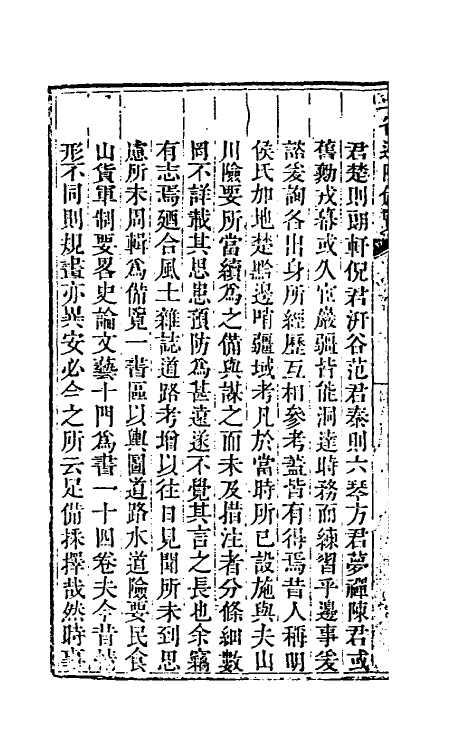 君楚則朗軒倪君沂谷范君秦則六琴方君夢禪陳君或
舊勷戎幕或久官嚴疆皆能洞達時務而練習乎邊事爰
諮爰詢各出身所經歷互相參考蓋皆有得焉昔人稱明
侯氏加地楚黔邊哨疆域考凡於當時所已設施與夫山
川險要所當續為之備與謀之而未及措注者分條細數
罔不詳載其思患預防為甚遠遂不覺其言之長也余竊
有志焉廼合風土雜誌道路考增以往日見聞所未到思
慮所未周輯為備覽一書區以輿圖道路水道險要民食
山貨軍制要畧史論文藝十門為書一十四卷夫今昔情
形不同則規畫亦異安必今之所云足備採擇哉然時事